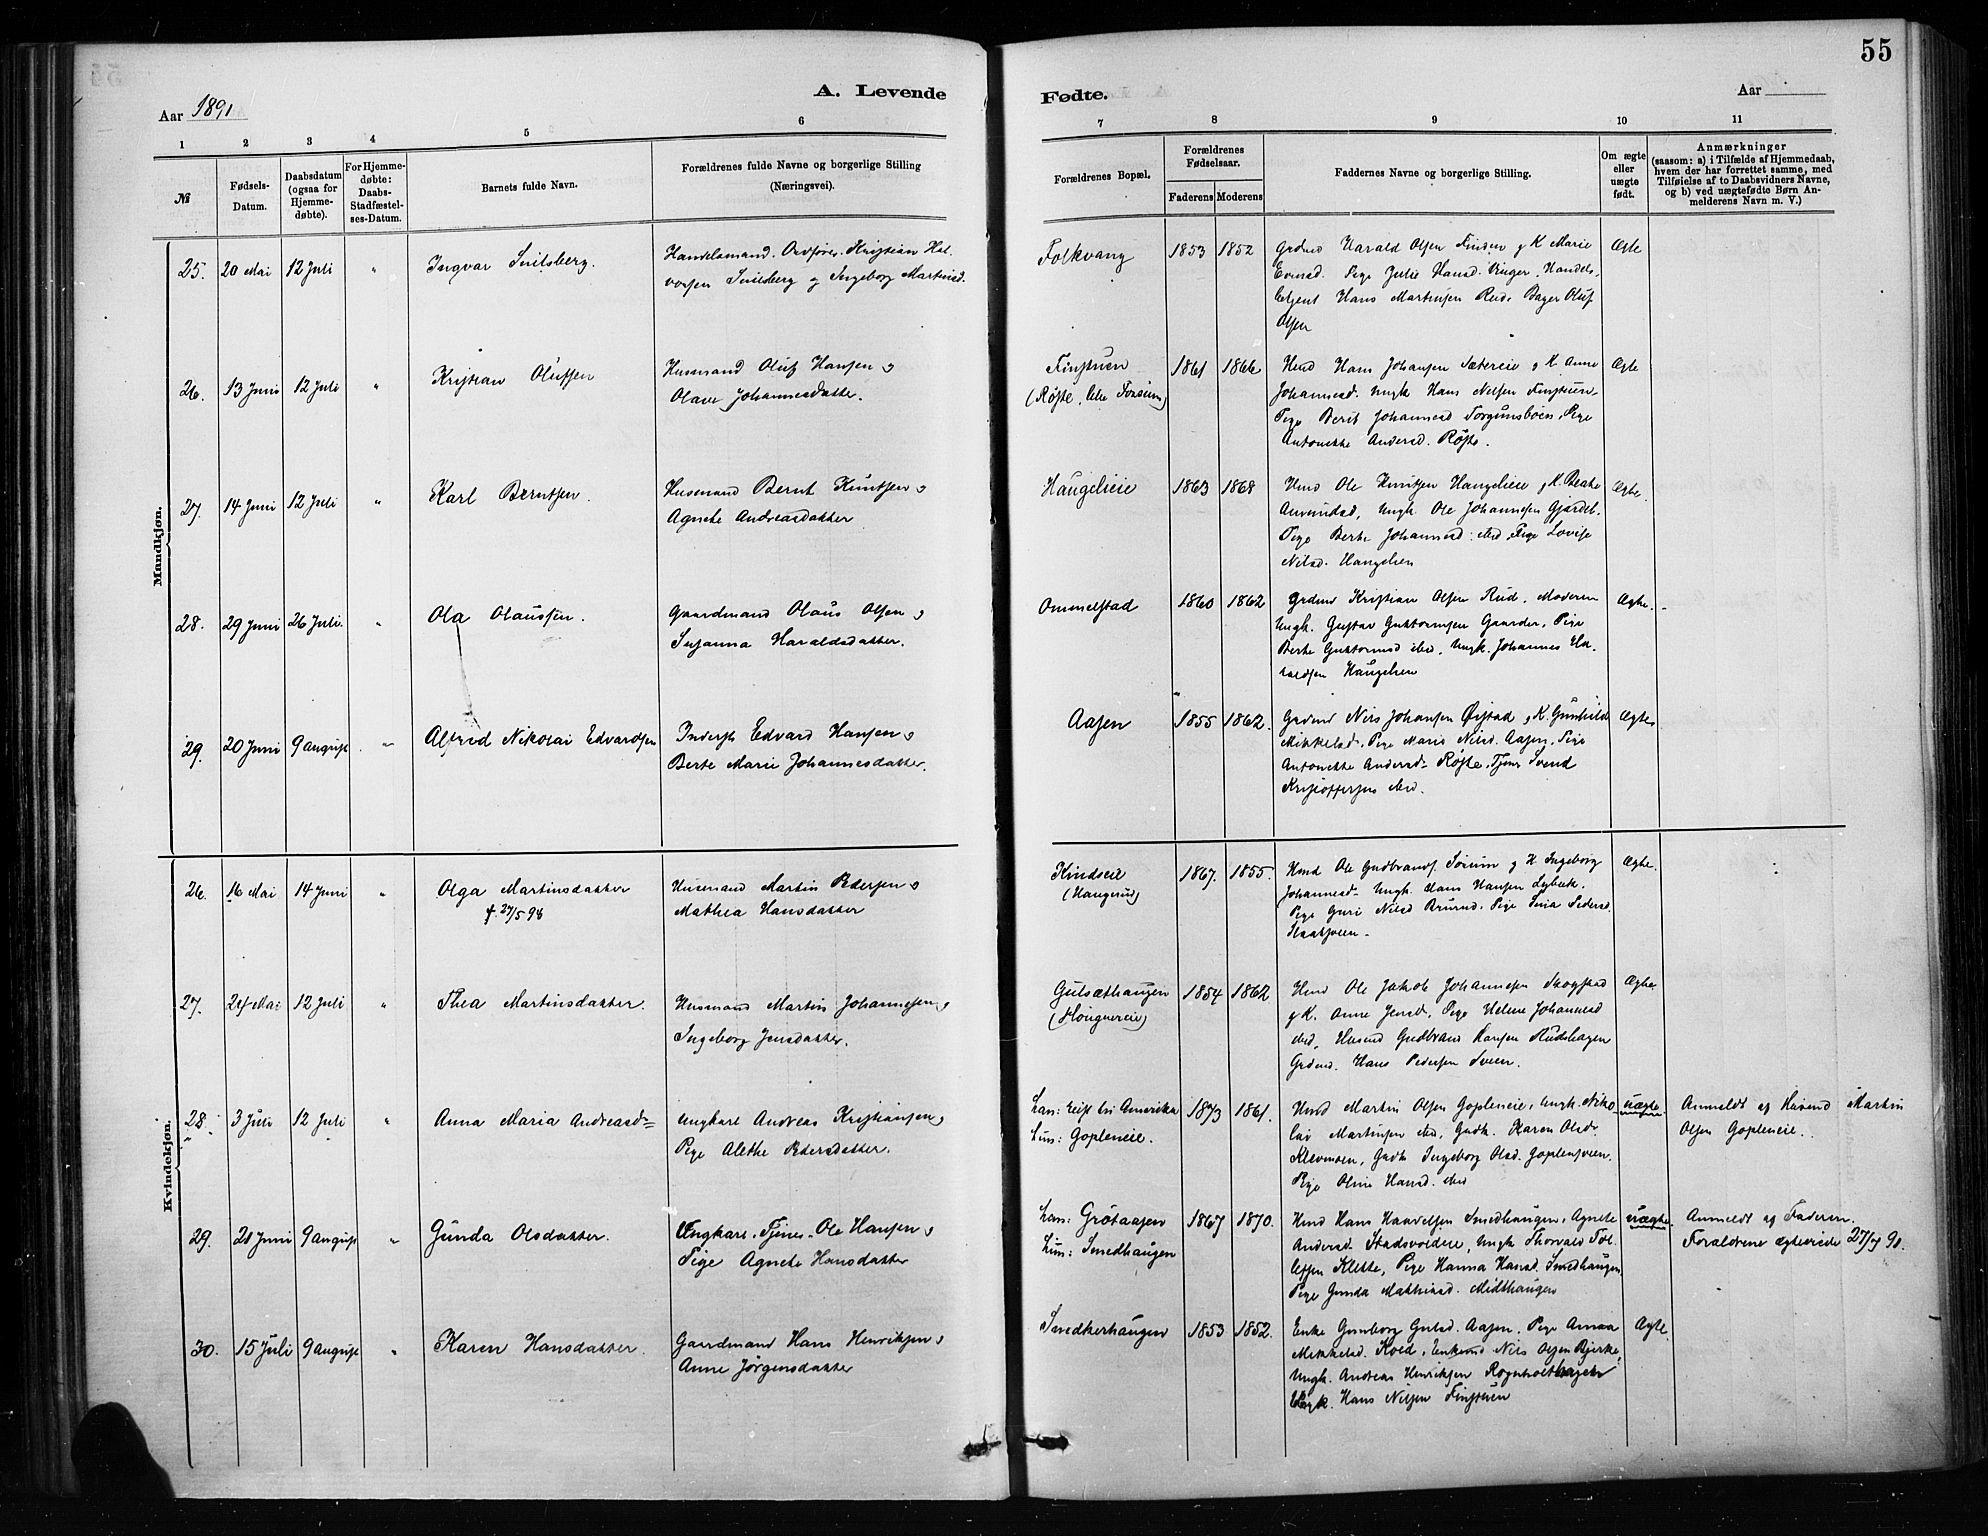 55
Aar 1891
A. Levende
Fødte.
Aar
1 2 3 4 5 6 7 8 9 10 11
№
Fødsels-
Datum.
Daabsdatum
(ogsaa for
Hjemme-
døbte).
For Hjemme-
døbte:
Daabs-
Stadfæstel-
ses-Datum.
Barnets fulde Navn.
Forældrenes fulde Navne og borgerlige Stilling
(Næringsvei).
Forældrenes Bopæl.
Forældrenes
Fødselsaar.
Faderens Moderens
Faddernes Navne og borgerlige Stilling.
Om ægte
eller
uægte
født.
Anmærkninger
(saasom: a) i Tilfælde af Hjemmedaab,
hvem der har forrettet samme, med
Tilføielse af to Daabsvidners Navne,
og b) ved uægtefødte Børn An-
melderens Navn m. V.)
Mandkjøn.
25. 20 Mai 12 Juli " Ingvar Snilsberg.
Handelsmand. Ordfører Kristian Hal-
vorsen Snilsberg og Ingeborg Martinsd.
Folkvang 1853 1852
Grdmd Harald Olsen Finden g K Marie
Evensd. Pige Julie Hansd. Vinger, Handels-
Agent Hans Martinsen Rud, Bager Oluf
Olsen
Ægte
26. 13 Juni 12 Juli " Kristian Olufsen
Husmand Oluf Hansen og
Olave Johannesdatter.
Finstuen
(Røjte, lille Forsum)
1861 1866
Hmd Hans Johansen Sætereie g K Anne
Johannesd. Ungk Hans Nilsen Finstuen.
Pige Berit Johannesd Torgunsboen, Pige
Antonette Andersd. Røjte.
Ægte
27. 14 Juni 12 Juli " Karl Berntsen.
Husmand Bernt Knutsen og
Agnethe Andreasdatter
Haugelieie 1863 1868
Hmd Ole Knutsen Haugelieie g K. Beate
Ungk Ole Johannesen
Pige Berte Johannesd. ibid, Pige Lovise
Nilsd. Haugelien
Ægte.
28. 29 Juni 26 Juli. " Ola Olaussen.
Gaardmand Olaus Olsen og
Susanna Haraldsdatter.
Ommelstad 1860 1862
Grdmd Kristian Olsen Rud, Moderen
Ungk. Gustav Guttormsen Gaarder, Pige
Berte Guttormsd ibid, Ungk. Johannes Ha-
raldsen Haugelien
Ægte.
29. 20 Juni 9 August " Alfred Nikolai Edvardsen
Inderst Edvard Hansen og
Berte Marie Johannesdatter.
Aasen 1855 1862.
Grdmd Nils Johansen Øistad g K. Gunhild
Mikkelsd. Pige Marie Nilsd. Aasen, Pige
Antonette Andersd. Røjte, Tjener Svend
Kristoffersen ibid.
Ægte
Kvindekjøn.
26. 16 Mai 14 Juni " Olga Martinsdatter
f. 27/5 98
Husmand Martin Pedersen og
Mathea Hansdatter
Kindseie
(Haugerud)
1867. 1855.
Hmd Ole Gudbrands. Sørum g K Ingeborg
Johannesd. Ungk. Hans Hansen Lybæk.
Pige Guri Nilsd Brurud. Pige Sina Pedersd.
Ægte.
27. 24 Mai 12 Juli " Thea Martinsdatter.
Husmand Martin Johannesen og
Ingeborg Jensdatter.
Gulsæthaugen
1854 1862
Hmd Ole Jakob Johannesen Skogstad
g K. Anne Jensd. Pige Helene Johannesd
ibid, Husmd Gudbrand Hansen Rudshagen
Grdmd. Hans Pedersen Sveen.
Ægte.
28. 3 Juli 12 Juli " Anna Maria Andreasd=
Ungkarl Andreas Kristiansen og
Pige Alethe Pedersdatter.
han: reist til Amerika
hun: Gopleneie.
1873 1861.
Hmd Martin Olsen Gopleneie, Ungk. Niko-
lai Martinsen ibid, Gudk. Karen Olsdr.
Klevmoen, Gudk Ingeborg Olsd. Goplensveen.
Pige Oline Hansd. ibid
uægte.
Anmeldt af Husmd Martin
Olsen Gopleneie.
29. 21 Juni 9 August " Gunda Olsdatter.
Ungkarl. Tjener Ole Hansen og
Pige Agnethe Hansdatter
han: Grøtaasen
hun: Smedhaugen
1867 1870.
Hmd Hans Haavelsen Smedhaugen, Agnete
Andersd. Ungk Thorvald Tol-
lefsen Klette, Pige Hanna Hansd. Smedhaugen,
Pige Gunda Mathisd. Midthaugen
uægte.
Anmeldt af Faderen.
Forældrene ægteviede
30. 15 Juli 9 August " Karen Hansdatter.
Gaardmand Hans Henriksen og
Anne Jørgensdatter
Smedkerhaugen 1853 1852.
Enke Gunborg Gulsd. Aasen. Pige Anna
Mikkelsd. Kold, Enkemd Nils Olsen Bjerke,
Ungk. Andreas Henriksen Rognholthagen
Ungk. Hans Nilsen Finstuen
Ægte.